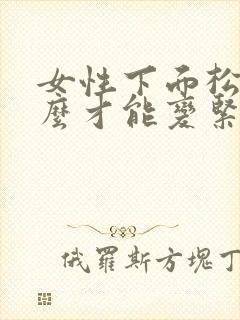 女性下面松
麼才能變緊
俄羅斯方塊丁